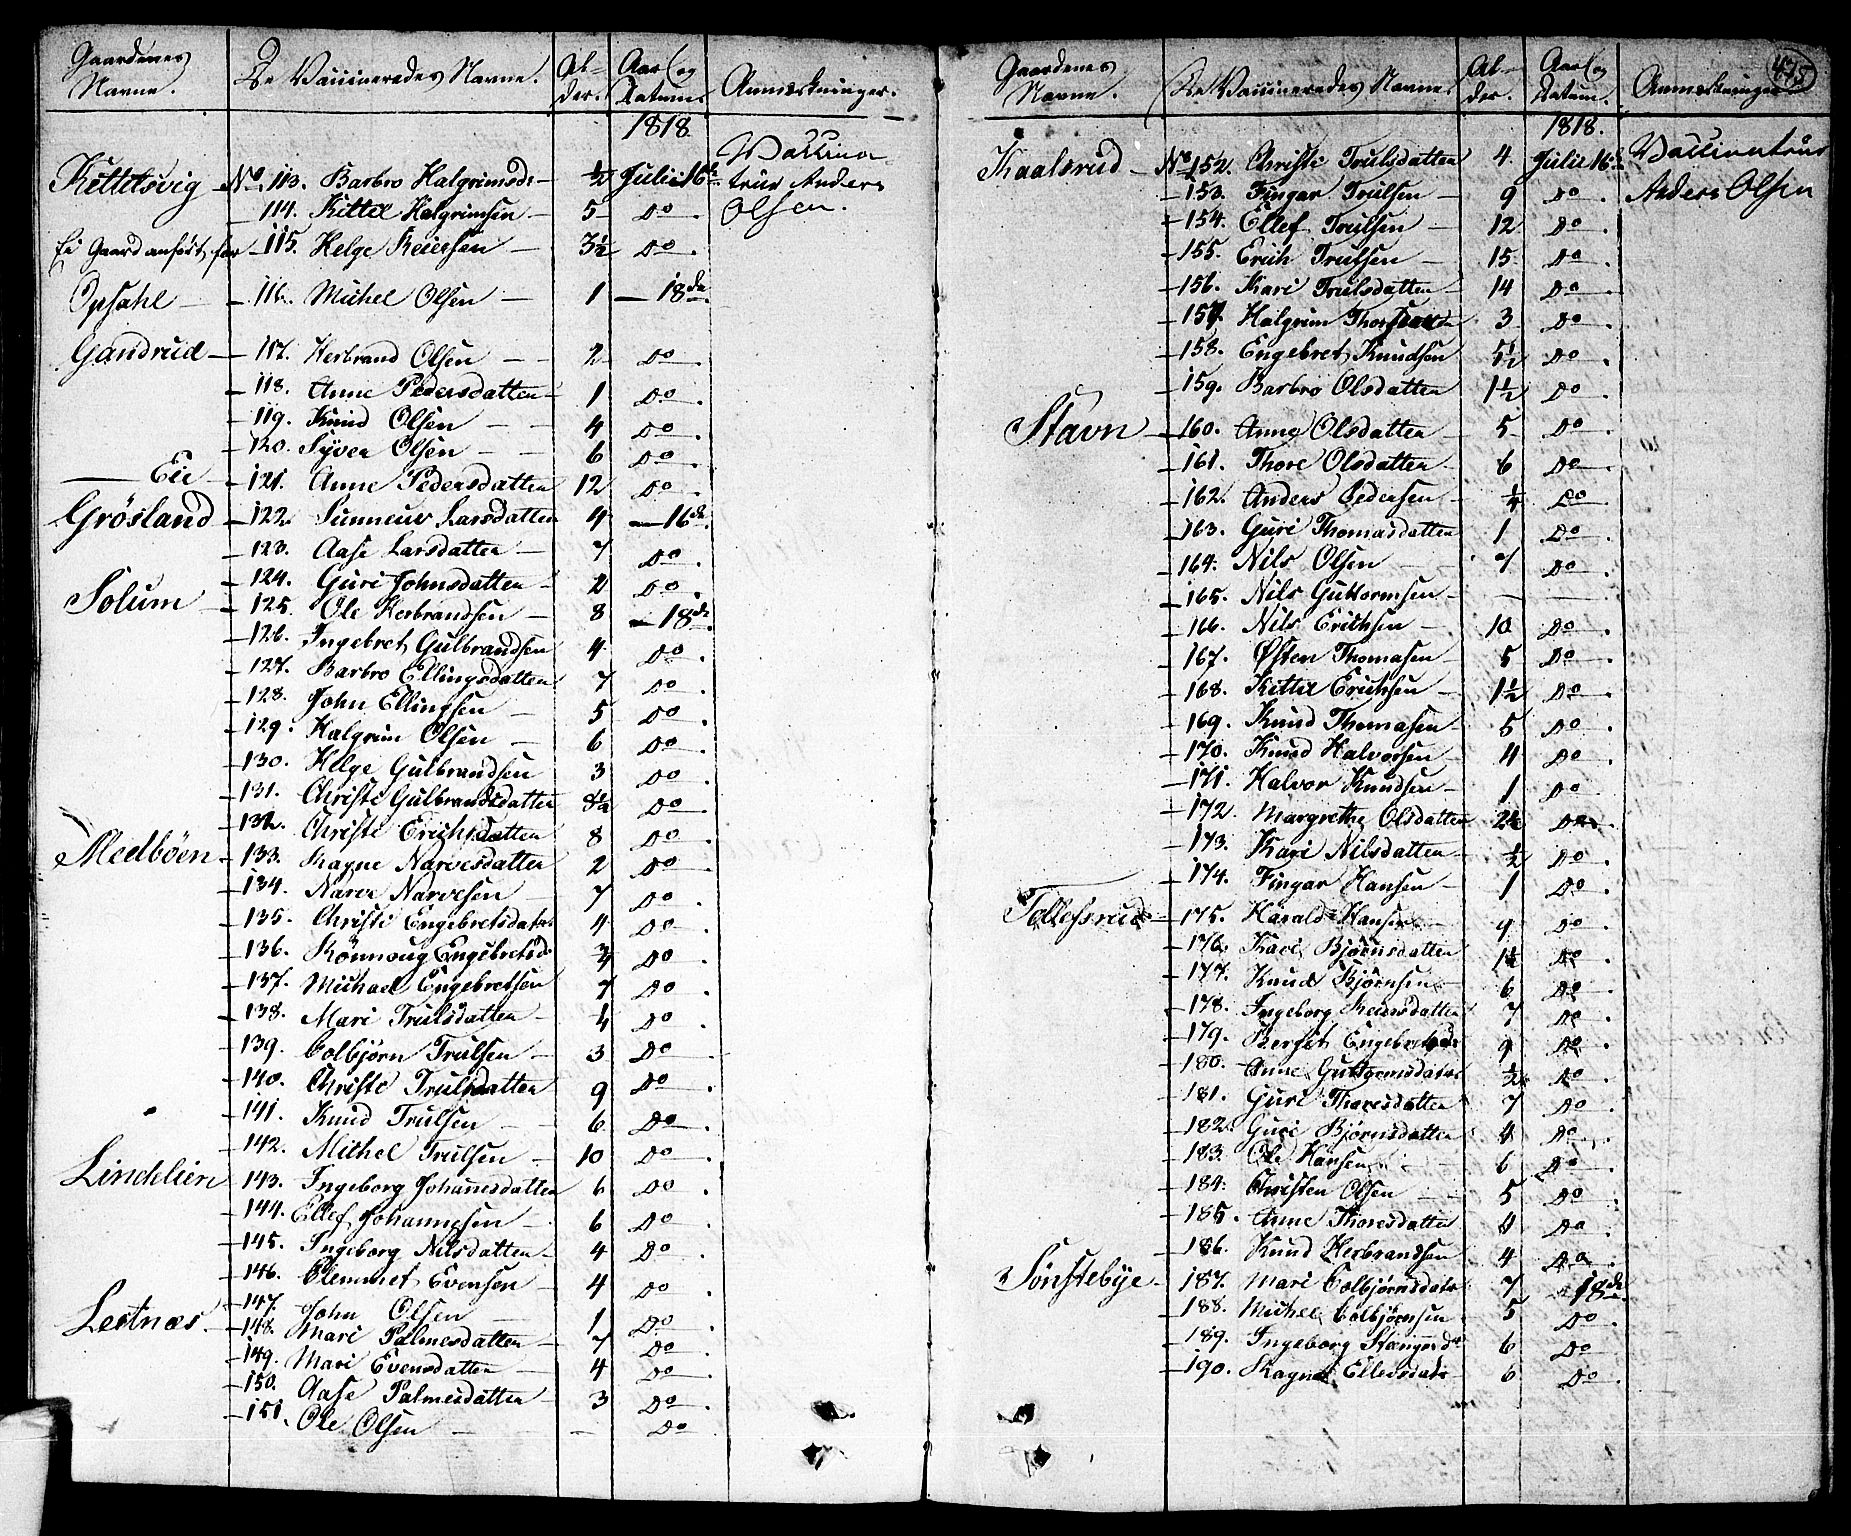 Gaardenes Navne. De Vaccineredes Navne. Al- der. Aar og Datum. Anmærkninger.
1818.
Kittelsvig No 113. Barbro Halgrimsdr ½ Julii 16de Vaccina-
teur Anders
— 114. Kittel Halgrimsen — 5 — Do. Olsen.
Ei Gaard anført for — 115. Helge Reiersen — 3½ Do.
Opsahl — — 116. Michel Olsen — 1 — 18de
Gandrud — 117. Herbrand Olsen — 2 Do.
— 118. Anne Pedersdatter — 1 Do.
— 119. Knud Olsen — 4 Do.
— 120. Syver Olsen — 6 Do.
— Eie — 121. Anne Pedersdatter 12 Do.
Grösland — 122. Sunneuv Larsdatter 4 — 16de
— 123. Aase Larsdatter — 7 Do.
— 124. Guri Johnsdatter — 2 Do.
Solum — 125. Ole Herbrandsen — 8 — 18de
— 126. Ingebret Gulbrandsen 4 Do.
— 127. Barbro Ellingsdatter 7 Do.
— 128. John Ellingsen — 5 Do.
— 129. Halgrim Olsen — 6 Do.
— 130. Helge Gulbrandsen 3 Do.
— 131. Christi Gulbrandsdatter 8½ Do.
— 132. Christi Erichsdatter 8 Do.
Medböen — 133. Ragne Narvesdatter 2 Do.
— 134. Narve Narvesen — 7 Do.
— 135. Christi Engebretsdatr 4 Do.
— 136. Rönnoug Engebretsd ¾ Do.
— 137. Michael Engebretsen 7 Do.
— 138. Mari Trulsdatter — Do.
— 139. Colbjörn Trulsen — 3 Do.
— 140. Christi Trulsdatter 9 Do.
— 141. Knud Trulsen — 6 Do.
— 142. Michel Trulsen — 10 Do.
Lindelien — 143. Ingeborg Johannesdatter 6 Do.
— 144. Ellef Johannesen — 6 Do.
— 145. Ingeborg Nilsdatter — 4 Do.
— 146. Clemmet Evensen — 4 Do.
— 147. John Olsen — 1 Do.
Lestnæs. — 148. Mari Palmesdatter — 7 Do.
— 149. Mari Evensdatter — 4 Do.
— 150. Aase Palmesdatter — 3 Do.
— 151. Ole Olsen — — Do
475
Gaardenes Navne. De Vaccineredes Navne. Al- der. Aar og Datum. Anmærkninger
1818.
Kaalsrud — No 152. Christi Trulsdatter 4 Julii 16de Vaccinateur
— 153. Fingar Trulsen — 9 Do. Anders Olsen
— 154. Ellef Trulsen — 12 Do.
— 155. Erich Trulsen — 15 Do.
— 156. Kari Trulsdatter 14 Do.
— 157. Halgrim 3 Do.
— 158. Engebret Knudsen 5½ Do.
— 159. Barbro Olsdatter 1½ Do.
Stavn — 160. Anne Olsdatter — 5 Do.
— 161. Thore Olsdatter — 6 Do.
— 162. Anders Pedersen — ¼ Do
— 163. Guri Thomasdatter 1 Do.
— 164. Nils Olsen — 7 Do.
— 165. Nils Guttormsen — — —
— 166. Nils Erichsen — 10 Do.
— 167. Østen Thomasen — 5 Do.
— 168. Kittel Erichsen — 1½ Do.
— 169. Knud Thomasen — 5 Do.
— 170. Knud Halvorsen — 4 Do.
— 171. Halvor Knudsen — 1 Do.
— 172. Margrethe Olsdatter 2½ Do.
— 173. Kari Nilsdatter — ½ Do.
— 174. Fingar Hansen — 1 Do.
Tollefsrud — 175. Harald Hansen — 9 Do.
— 176. Kari Bjørnsdatter Do.
— 177. Knud Bjørnsen — 6 Do.
— 178. Ingeborg 7 Do.
— 179. Berset Engebretsdr 9 Do.
— 180. Anne Guttormsdatr ½ Do.
— 181. Guri Thoresdatter 7 Do.
— 182. Guri Bjørnsdatter 4 Do.
— 183. Ole Hansen — 6 Do.
— 184. Christen Olsen — 5 Do.
— 185. Anne Thoresdatter 4 Do.
— 186. Knud Herbrandsen 4 Do.
Sönstebye — 187. Mari Colbjörnsdatr 7 — 18de
— 188. Michel Colbjörnsen 5 Do.
— 189. Ingeborg 6 Do.
— 190. Ragnel Ellevsdatr 6 Do.